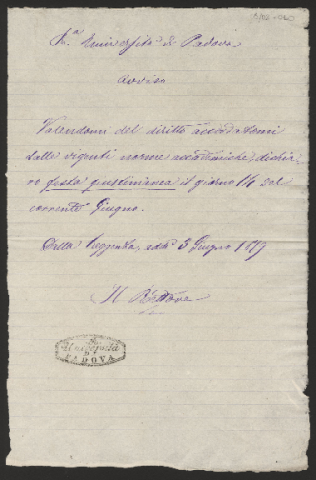 R.a Università di Padova
Avviso
Valendomi del diritto accordatomi
dalle vigenti norme accademiche, dichia-
ro festa giustinianea il giorno 14 del
corrente Giugno.
Dalla Reggenza, addì 3 Giugno 1879
Il Rettore
Università
DI
PADOVA